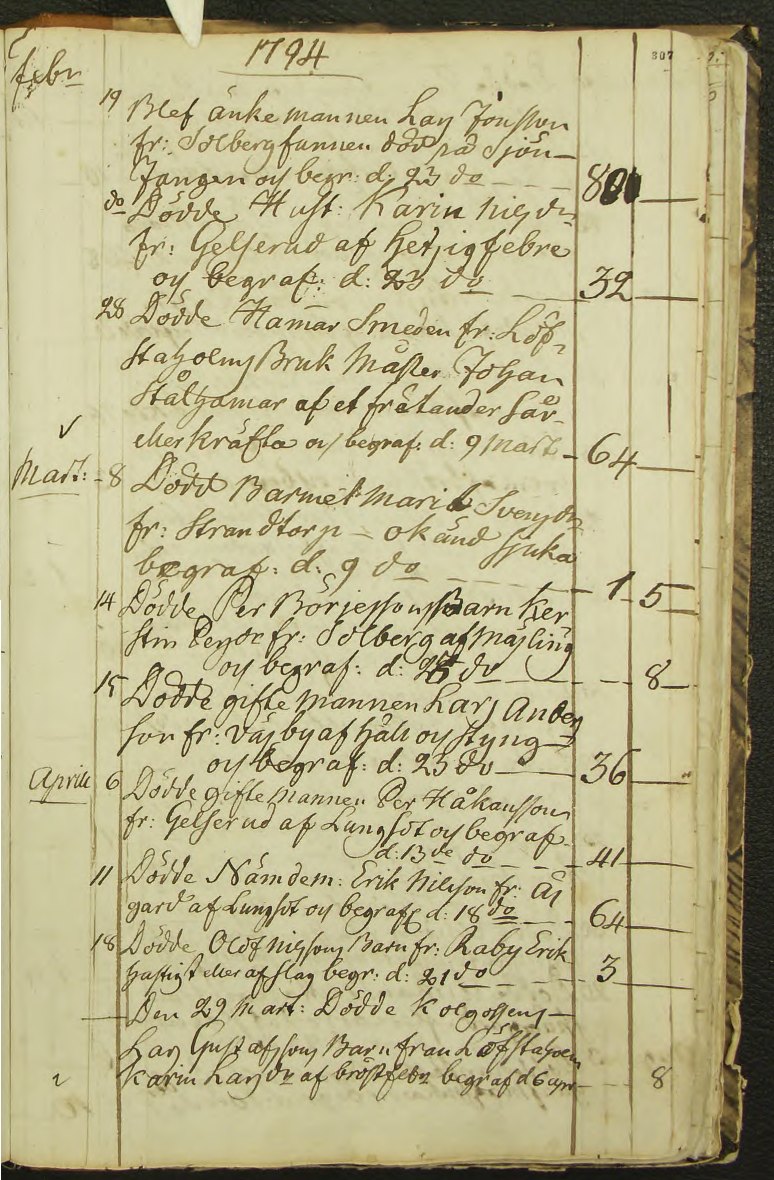 1794
307
febr
19 Blef änkemannen Lars Jönsson
fr: Solbergfannen död på Sjön
Fangen och begr: d: 23 do 80
do Dödde Hust: Karin Nils dr
fr: Gelserud af hetzigfebre
och begraf: d: 23 do 32
28 Dödde Hamar Smeden fr: Löf-
staholms Bruk Mäster Johan
Stålhamar af et frätander Sår
eller kräfta och begraf: d: 9 Mart 64
Mart: 8 Dödde Barnet Marit Svens dr
fr: Strandtorp - okänd Sjuka
begraf: d: 9 do 1 5
14 Dödde Per Börjessons Barn Ker
stin Pers dr fr: Solberg af Mäsling
och begraf: d: do 8
15 Dödde gifte mannen Lars Anders
son fr: Väsby af håll och styng
och begraf: d: 23 do 36
Aprill 6 Dödde gifte Mannen Per Håkansson
fr: Gelserud af Lungsot och begraf
d: 13 de do 41
11 Dödde Nämdem: Erik Nilsson fr: Ås
gard af Lungsot och begraf d: 18 do 64
18 Dödde Olof Nilssons Barn fr: Raby Erik
hastigt eller af slag begr: d: 21 do 3
Den 29 Mart: Dödde Kolgossens
Lars Gustafssons Barn fran Löfstaholm
Karin Lars dr af bröstfebr begraf d 6 apr 8